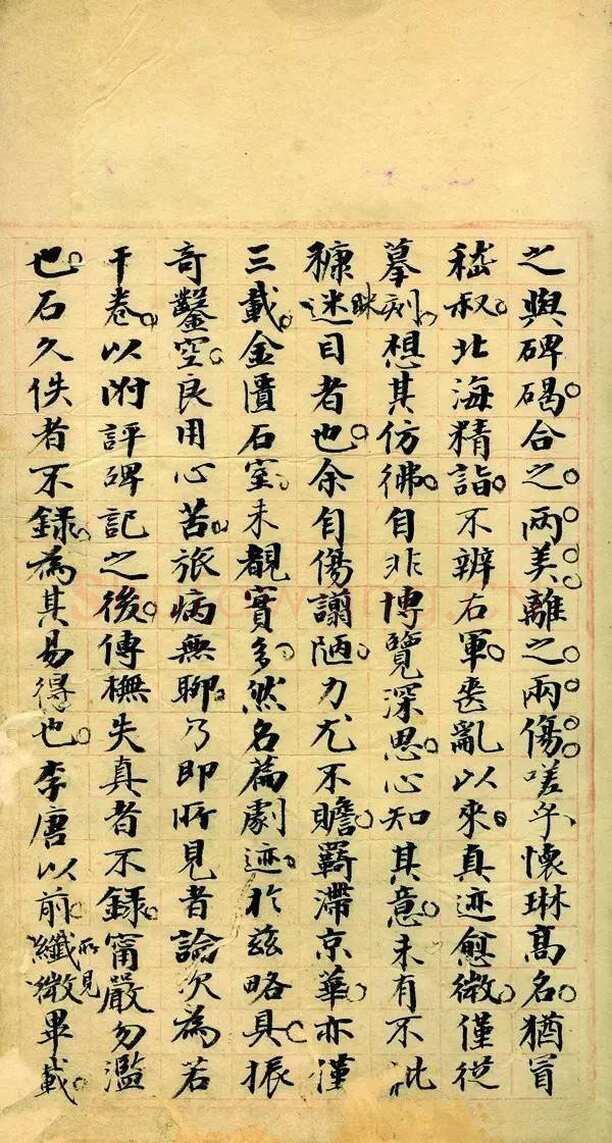 之與碑碣合之兩美離之兩傷嗟乎懷琳高名猶冒
嵇叔北海精詣不辨右軍喪亂以來真迹愈微僅從
摹刻想其仿彿自非博覽深思心知其意未有不
穅眯目者也余自傷謭陋力尤不贍羇滯京華亦僅
三載金匱石室未覩實多然名蹟劇迹於茲略具振
奇鑿空良用心苦旅病無聊乃即所見者論次為若
干卷以附評碑記之後傳橅失真者不錄甯嚴勿濫
也石久佚者不錄為其易得也李唐以前所見纖微畢載